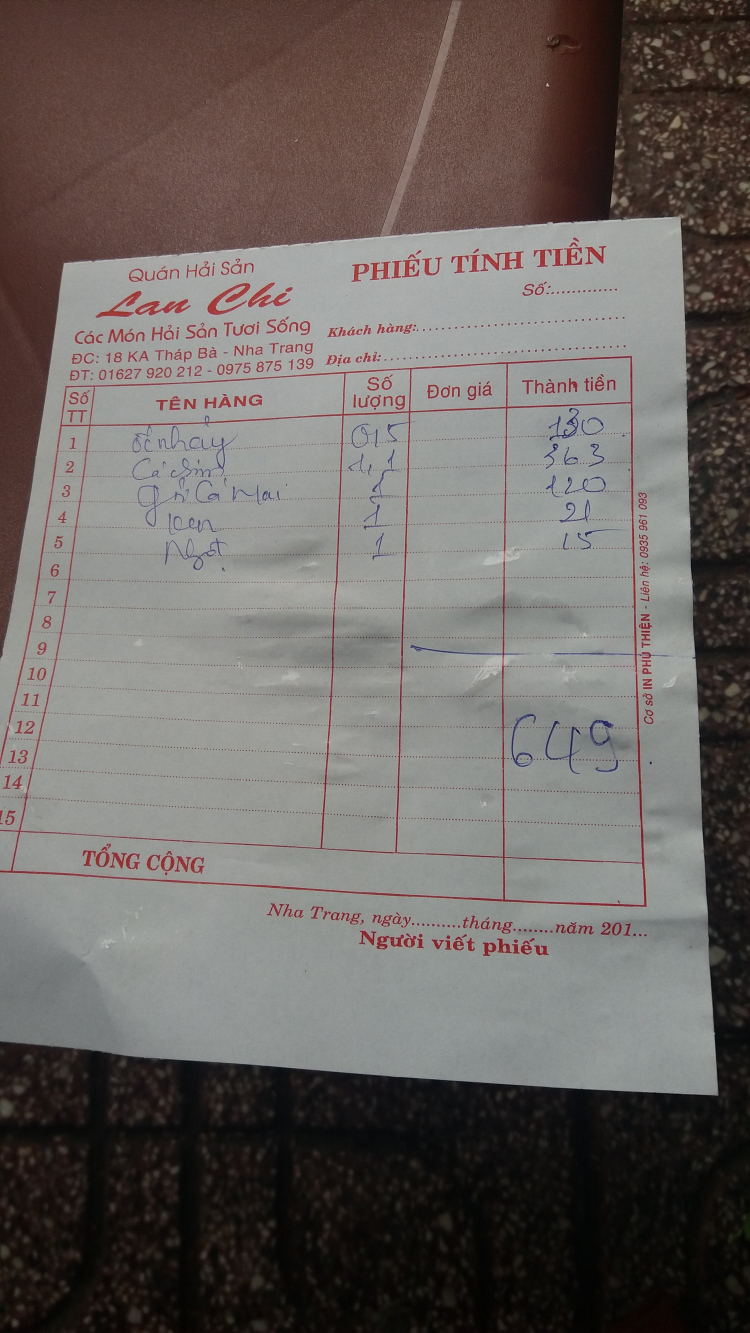 Quán Hải Sản
Lan Chi
Các Món Hải Sản Tươi Sống
ĐC: 18 KA Tháp Bà - Nha Trang
ĐT: 01627 920 212 - 0975 875 139
PHIẾU TÍNH TIỀN
Số:.............
Khách hàng:
Địa chỉ:
Số TT TÊN HÀNG Số lượng Đơn giá Thành tiền
1 ốc nhảy 0,5 130
2 Cá 1,1 363
3 gỏi Cá Mai 1 120
4 Ken 1 21
5 Ngọt 1 15
6
7
8
9
10
11
12
13
14
15
649
TỔNG CỘNG
Nha Trang, ngày..........tháng........năm 201...
Người viết phiếu
Cơ sở IN PHÚ THIỆN - Liên hệ: 0935 961 093